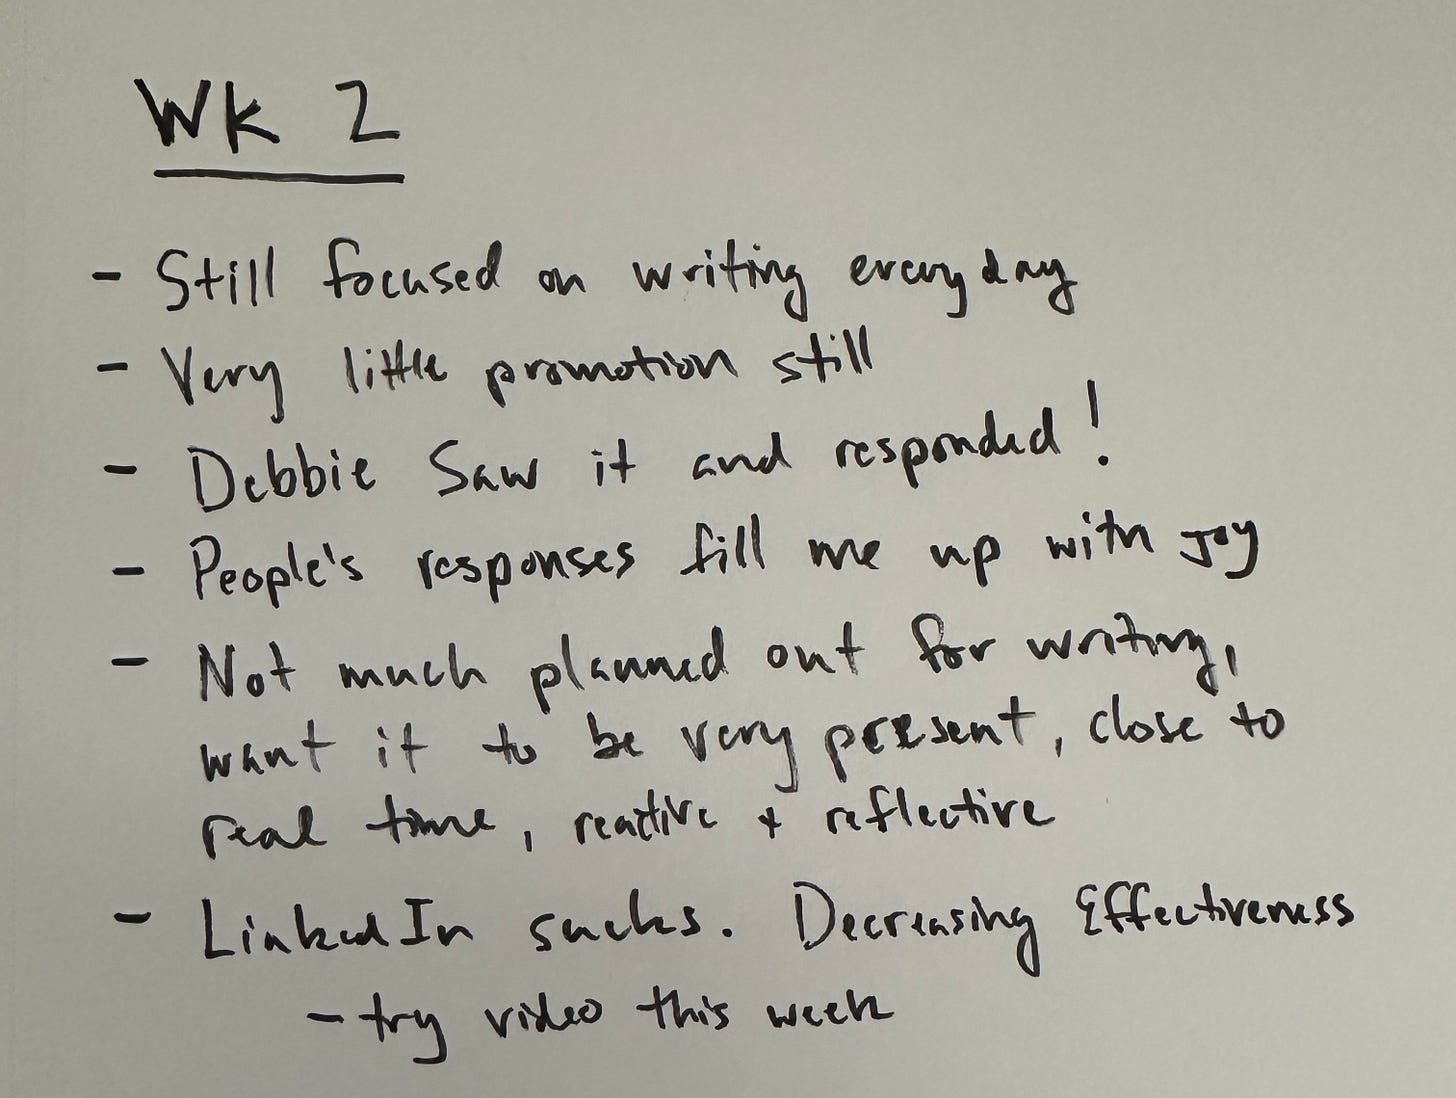 Wk 2
- Still focused on writing everyday
- Very little promotion still
- Debbie Saw it and responded!
- People's responses fill me up with joy
- Not much planned out for writing,
want it to be very present, close to
real time, reactive + reflective
- LinkedIn sucks. Decreasing Effectiveness
- try video this week